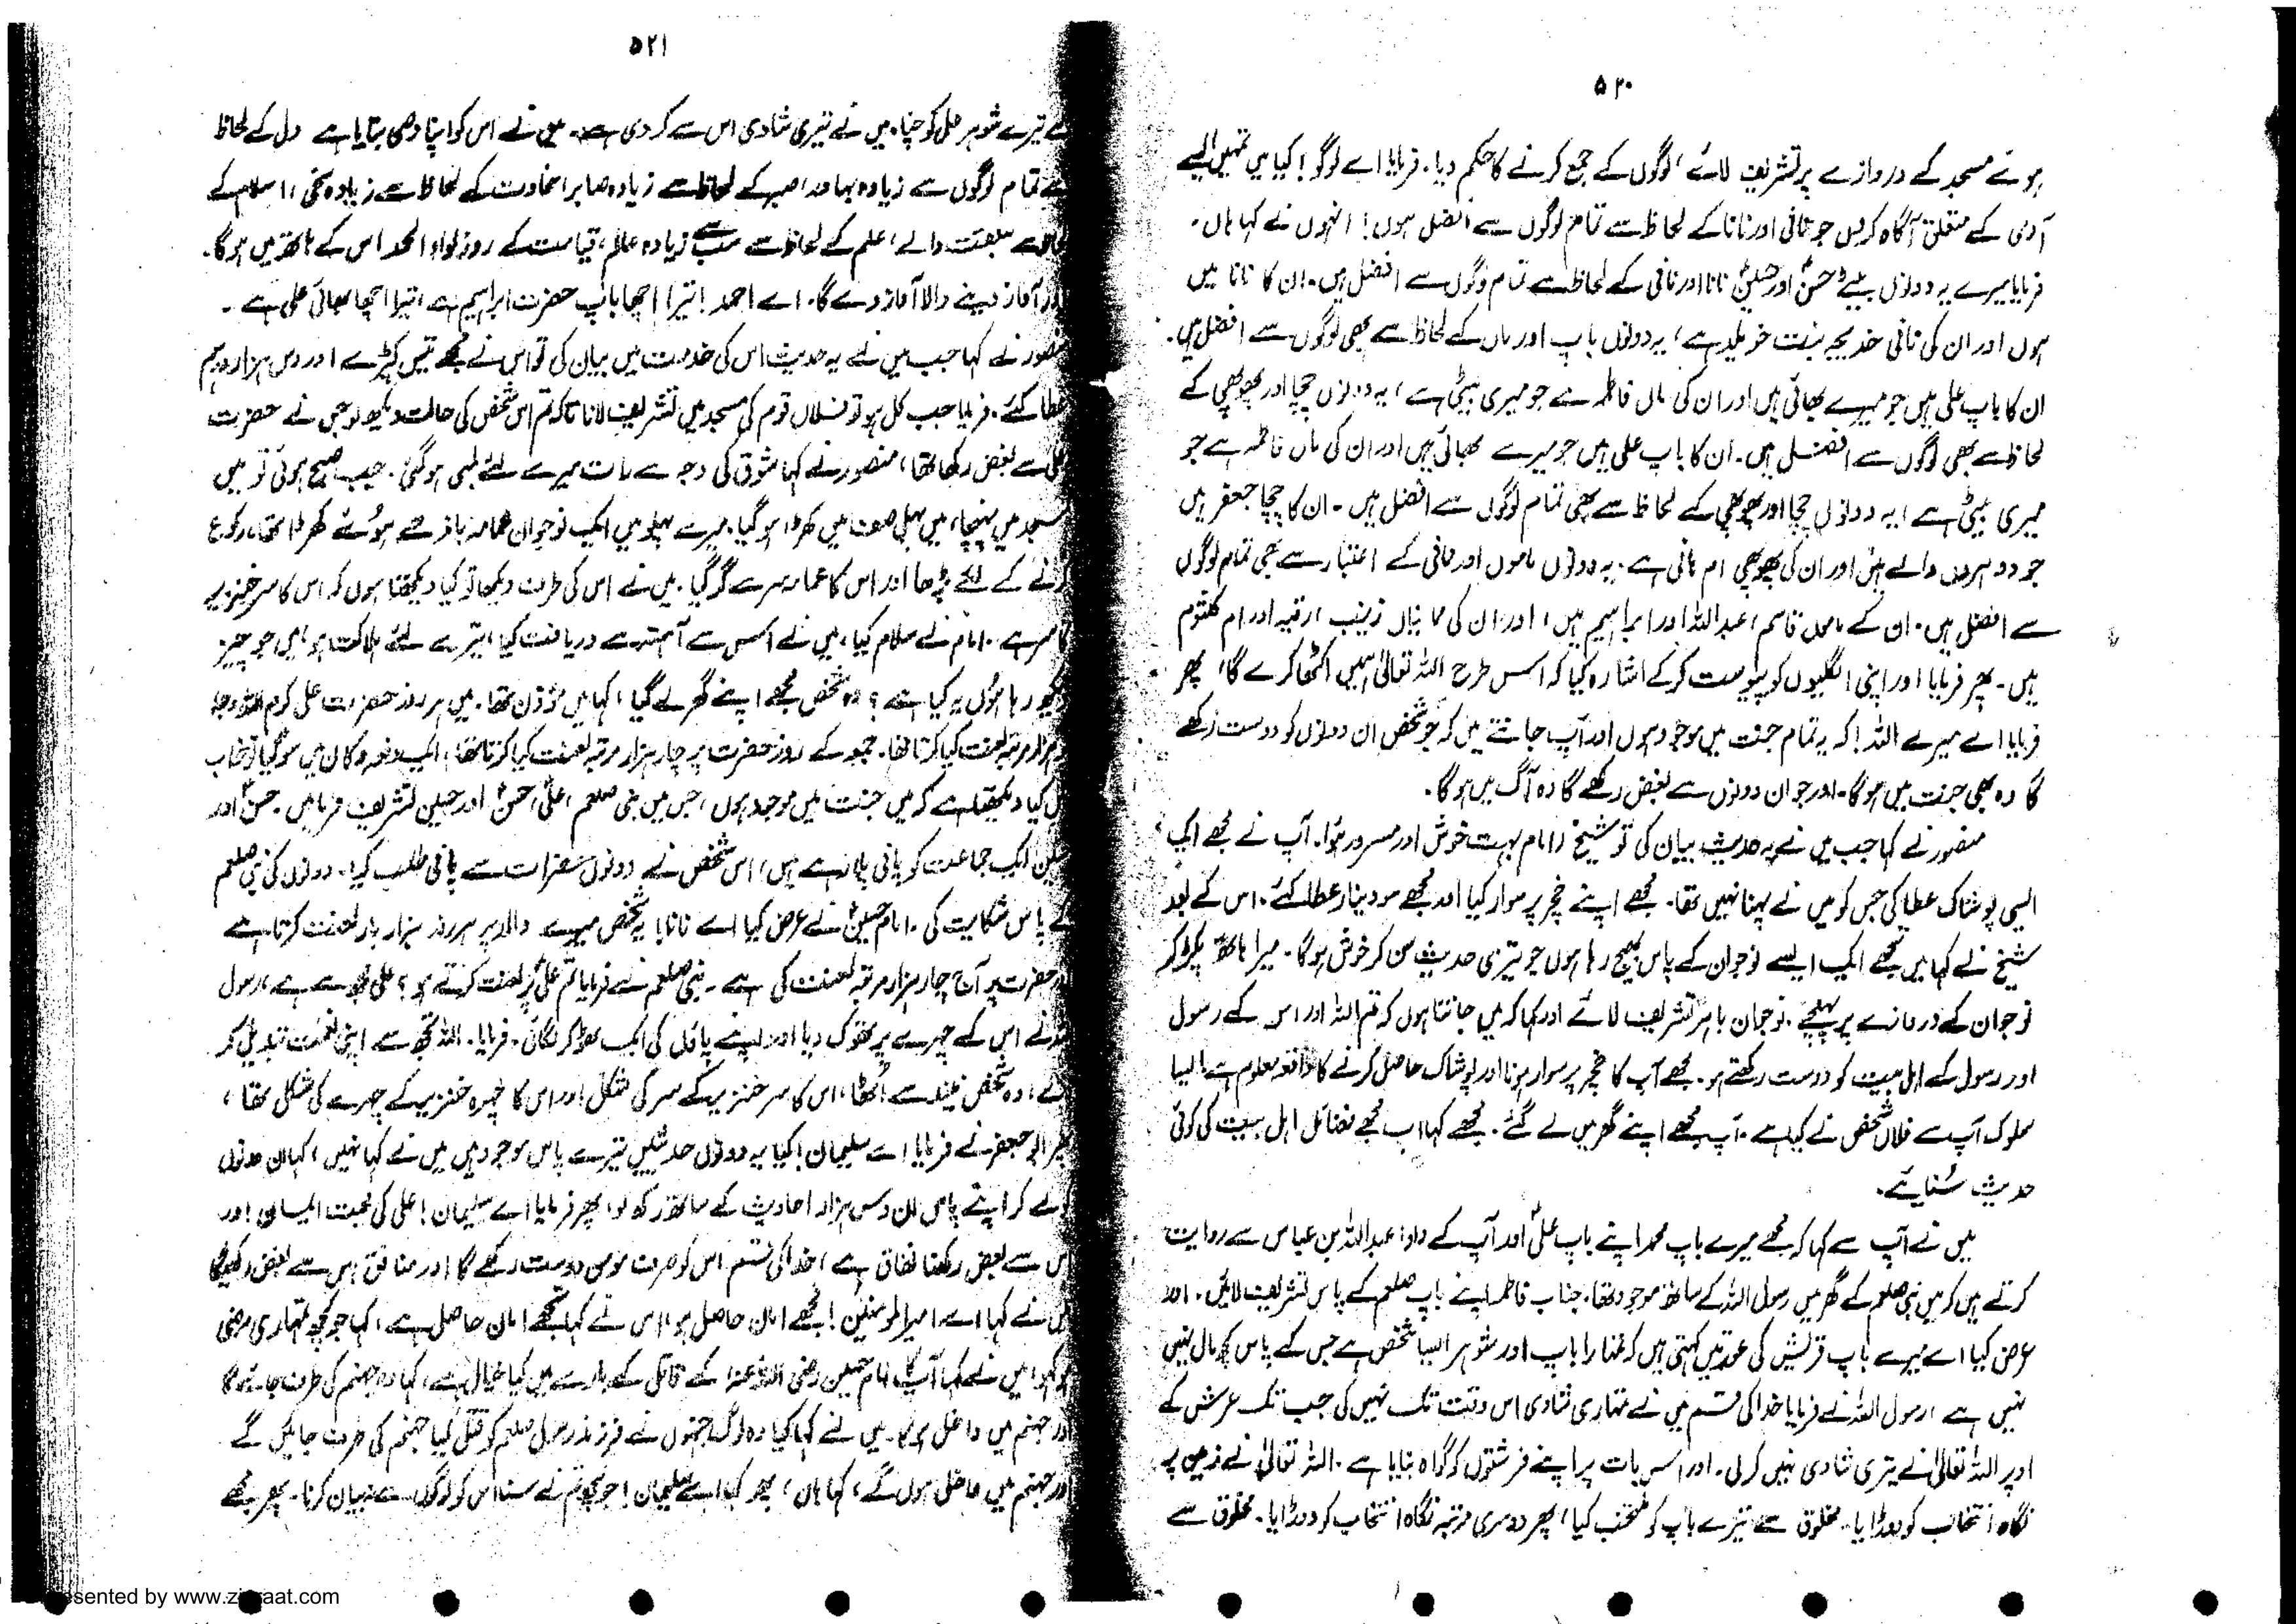 ۵۲۰
ہوئے مسجد کے دروازے پر تشریف لائے، لوگوں کے جمع کرنے کا حکم دیا۔ فرمایا اے لوگو! کیا میں تمہیں ایسے
آدمی کے متعلق آگاہ کروں جو نانی اور نانا کے لحاظ سے تمام لوگوں سے افضل ہوں! انہوں نے کہا ہاں۔
فرمایا میرے یہ دونوں بیٹے حسنؑ اور حسینؑ نانا اور نانی کے لحاظ سے تمام لوگوں سے افضل ہیں۔ ان کا نانا میں
ہوں اور ان کی نانی خدیجہ بنت خویلد ہے، یہ دونوں باپ اور ماں کے لحاظ سے بھی لوگوں سے افضل ہیں۔
ان کا باپ علی ہیں جو میرے بھائی ہیں اور ان کی ماں فاطمہ ہے جو میری بیٹی ہے، یہ دونوں چچا اور پھوپھی کے
لحاظ سے بھی لوگوں سے افضل ہیں۔ ان کا باپ علی ہیں جو میرے بھائی ہیں اور ان کی ماں فاطمہ ہے جو
میری بیٹی ہے، یہ دونوں چچا اور پھوپھی کے لحاظ سے بھی تمام لوگوں سے افضل ہیں۔ ان کا چچا جعفر ہیں
جو دو پروں والے ہیں اور ان کی پھوپھی ام ہانی ہے۔ یہ دونوں ماموں اور خالہ کے اعتبار سے بھی تمام لوگوں
سے افضل ہیں۔ ان کے ماموں قاسم، عبداللہ اور ابراہیم ہیں، اور ان کی زینب، رقیہ اور ام کلثوم
ہیں۔ پھر فرمایا اور اپنی انگلیوں کو پیوست کرکے اشارہ کیا کہ اس طرح اللہ تعالیٰ ہمیں اکٹھا کرے گا، پھر
فرمایا اے میرے اللہ! کہ یہ تمام جنت میں موجود ہوں اور آپ جانتے ہیں کہ جو شخص ان دونوں کو دوست رکھے
گا وہ بھی جنت میں ہوگا۔ اور جو ان دونوں سے بغض رکھے گا وہ آگ میں ہوگا۔
منصور نے کہا جب میں نے یہ حدیث بیان کی تو شیخ (امام بہت خوش اور مسرور ہوا۔ آپ نے مجھے ایک
ایسی پوشاک عطا کی جس کو میں نے پہنا نہیں تھا۔ مجھے اپنے خچر پر سوار کیا اور مجھے سو دینار عطا کئے۔ اس کے بعد
شیخ نے کہا میں تجھے ایک ایسے نوجوان کے پاس بھیج رہا ہوں جو تیری حدیث سن کر خوش ہوگا۔ میرا ہاتھ پکڑ کر
نوجوان کے دروازے پر پہنچے۔ نوجوان باہر تشریف لائے اور کہا کہ میں جانتا ہوں کہ تم اللہ اور اس کے رسول
اور رسول کے اہل بیت کو دوست رکھتے ہو۔ مجھے آپ کا خچر پر سوار ہونا اور پوشاک حاصل کرنے کا واقعہ معلوم ہے ایسا
سلوک آپ سے فلاں شخص نے کیا ہے۔ آپ مجھے اپنے گھر میں لے گئے۔ مجھے کہا اب مجھے فضائل اہل بیت کی کوئی
حدیث سُنائیے۔
میں نے آپ سے کہا کہ مجھے میرے باپ محمد اپنے باپ علیؑ اور آپ کے دادا عبداللہ بن عباس سے روایت
کرتے ہیں کہ میں نبی صلعم کے گھر میں رسول اللہ کے ساتھ موجود تھا۔ جناب فاطمہ اپنے باپ صلعم کے پاس تشریف لائیں۔ اور
عرض کیا اے میرے باپ قریش کی عورتیں کہتی ہیں کہ تمہارا باپ اور شوہر ایسا شخص ہے جس کے پاس کچھ مال نہیں
نہیں ہے، رسول اللہ نے فرمایا خدا کی قسم میں نے تمہاری شادی اس وقت تک نہیں کی جب تک عرش کے
اوپر اللہ تعالیٰ نے تیری شادی نہیں کر لی۔ اور اس بات پر اپنے فرشتوں کو گواہ بنایا ہے۔ اللہ تعالیٰ نے زمین پر
نگاہ انتخاب کو دوڑایا۔ مخلوق سے تیرے باپ کو منتخب کیا، پھر دوسری مرتبہ نگاہ انتخاب کو دوڑایا۔ مخلوق سے
۵۲۱
سے تیرے شوہر علی کو چنا، میں نے تیری شادی اس سے کر دی ہے۔ میں نے اس کو اپنا وصی بنایا ہے دل کے لحاظ
سے تمام لوگوں سے زیادہ بہادر، صبر کے لحاظ سے زیادہ صابر، سخاوت کے لحاظ سے زیادہ سخی، اسلام کے
لحاظ سے سبقت والے، علم کے لحاظ سے سب سے زیادہ عالم، قیامت کے روز لواء الحمد اس کے ہاتھ میں ہوگا۔
اور آواز دینے والا آواز دے گا۔ اے احمد! تیرا اچھا باپ حضرت ابراہیم ہے، تیرا اچھا بھائی علی ہے۔
منصور نے کہا جب میں نے یہ حدیث اس کی خدمت میں بیان کی تو اس نے مجھے تیس کپڑے اور دس ہزار درہم
عطا کئے۔ فرمایا جب کل ہو تو فلاں قوم کی مسجد میں تشریف لانا تاکہ تم اس شخص کی حالت دیکھ لو جس نے حضرت
علی سے بغض رکھا تھا، منصور نے کہا شوق کی وجہ سے رات میرے لئے لمبی ہوگئی۔ جب صبح ہوئی تو میں
مسجد میں پہنچا، میں پہلی صف میں کھڑا ہو گیا۔ میرے پہلو میں ایک نوجوان عمامہ باندھے ہوئے کھڑا تھا، رکوع
کرنے کے لئے بڑھا اور اس کا عمامہ سر سے گر گیا۔ میں نے اس کی طرف دیکھا تو کیا دیکھتا ہوں کہ اس کا سر خنزیر
کا سر ہے۔ امام نے سلام کیا، میں نے اس سے آہستہ سے دریافت کیا، تیرے لئے ہلاکت ہو میں جو چیز
دیکھ رہا ہوں یہ کیا ہے؟ وہ شخص مجھے اپنے گھر لے گیا، کہا میں مؤذن تھا۔ میں ہر روز حضرت علی کرم اللہ وجہہ
ہزار مرتبہ لعنت کیا کرتا تھا۔ جمعہ کے روز حضرت پر چار ہزار مرتبہ لعنت کیا کرتا تھا، ایک دفعہ دکان میں سو گیا تو خواب
میں کیا دیکھتا ہے کہ میں جنت میں موجود ہوں، جس میں نبی صلعم، علیؑ، حسنؑ اور حسین تشریف فرما ہیں۔ حسنؑ اور
حسین ایک جماعت کو پانی پلا رہے ہیں، اس شخص نے دونوں حضرات سے پانی طلب کیا۔ دونوں کی نبی صلعم
کے پاس شکایت کی۔ امام حسینؑ نے عرض کیا اے نانا! یہ شخص میرے والد پر ہر روز ہزار بار لعنت کرتا ہے
اور حضرت پر آج چار ہزار مرتبہ لعنت کی ہے۔ نبی صلعم نے فرمایا تم علیؑ پر لعنت کرتے ہو؟ علی مجھ سے ہے، رسول
اللہ نے اس کے چہرے پر تھوک دیا اور اپنے پاؤں کی ایک ٹھوکر لگائی۔ فرمایا۔ اللہ تجھ سے اپنی نعمت تبدیل کر
دے، وہ شخص نیند سے اُٹھا، اس کا سر خنزیر کے سر کی شکل اور اس کا چہرہ خنزیر کے چہرے کی شکل تھا،
پھر ابو جعفر نے فرمایا اے سلیمان! کیا یہ دونوں حدیثیں تیرے پاس موجود ہیں میں نے کہا نہیں، کہا ان دونوں
کو لے کر اپنے پاس ان دس ہزار احادیث کے ساتھ رکھ لو، پھر فرمایا اے سلیمان! علی کی محبت ایمان اور
اس سے بغض رکھنا نفاق ہے، خدا کی قسم اس کو صرف مومن دوست رکھے گا اور منافق اس سے بغض رکھے گا
میں نے کہا اے امیر المومنین! مجھے امان حاصل ہو، اس نے کہا تجھے امان حاصل ہے، کہا جو کچھ تمہاری مرضی
ہو کہو، میں نے کہا آپ کا امام حسین رضی اللہ عنہ کے قاتل کے بارے میں کیا خیال ہے، کہا وہ جہنم کی طرف جائے گا
اور جہنم میں داخل ہوگا۔ میں نے کہا کیا وہ لوگ جنہوں نے فرزند رسول صلعم کو قتل کیا جہنم کی طرف جائیں گے
اور جہنم میں داخل ہوں گے، کہا ہاں، پھر کہا اے سلیمان! جو کچھ تم نے سنا اس کو لوگوں سے بیان کرنا۔ پھر مجھے
esented by www.ziaraat.com